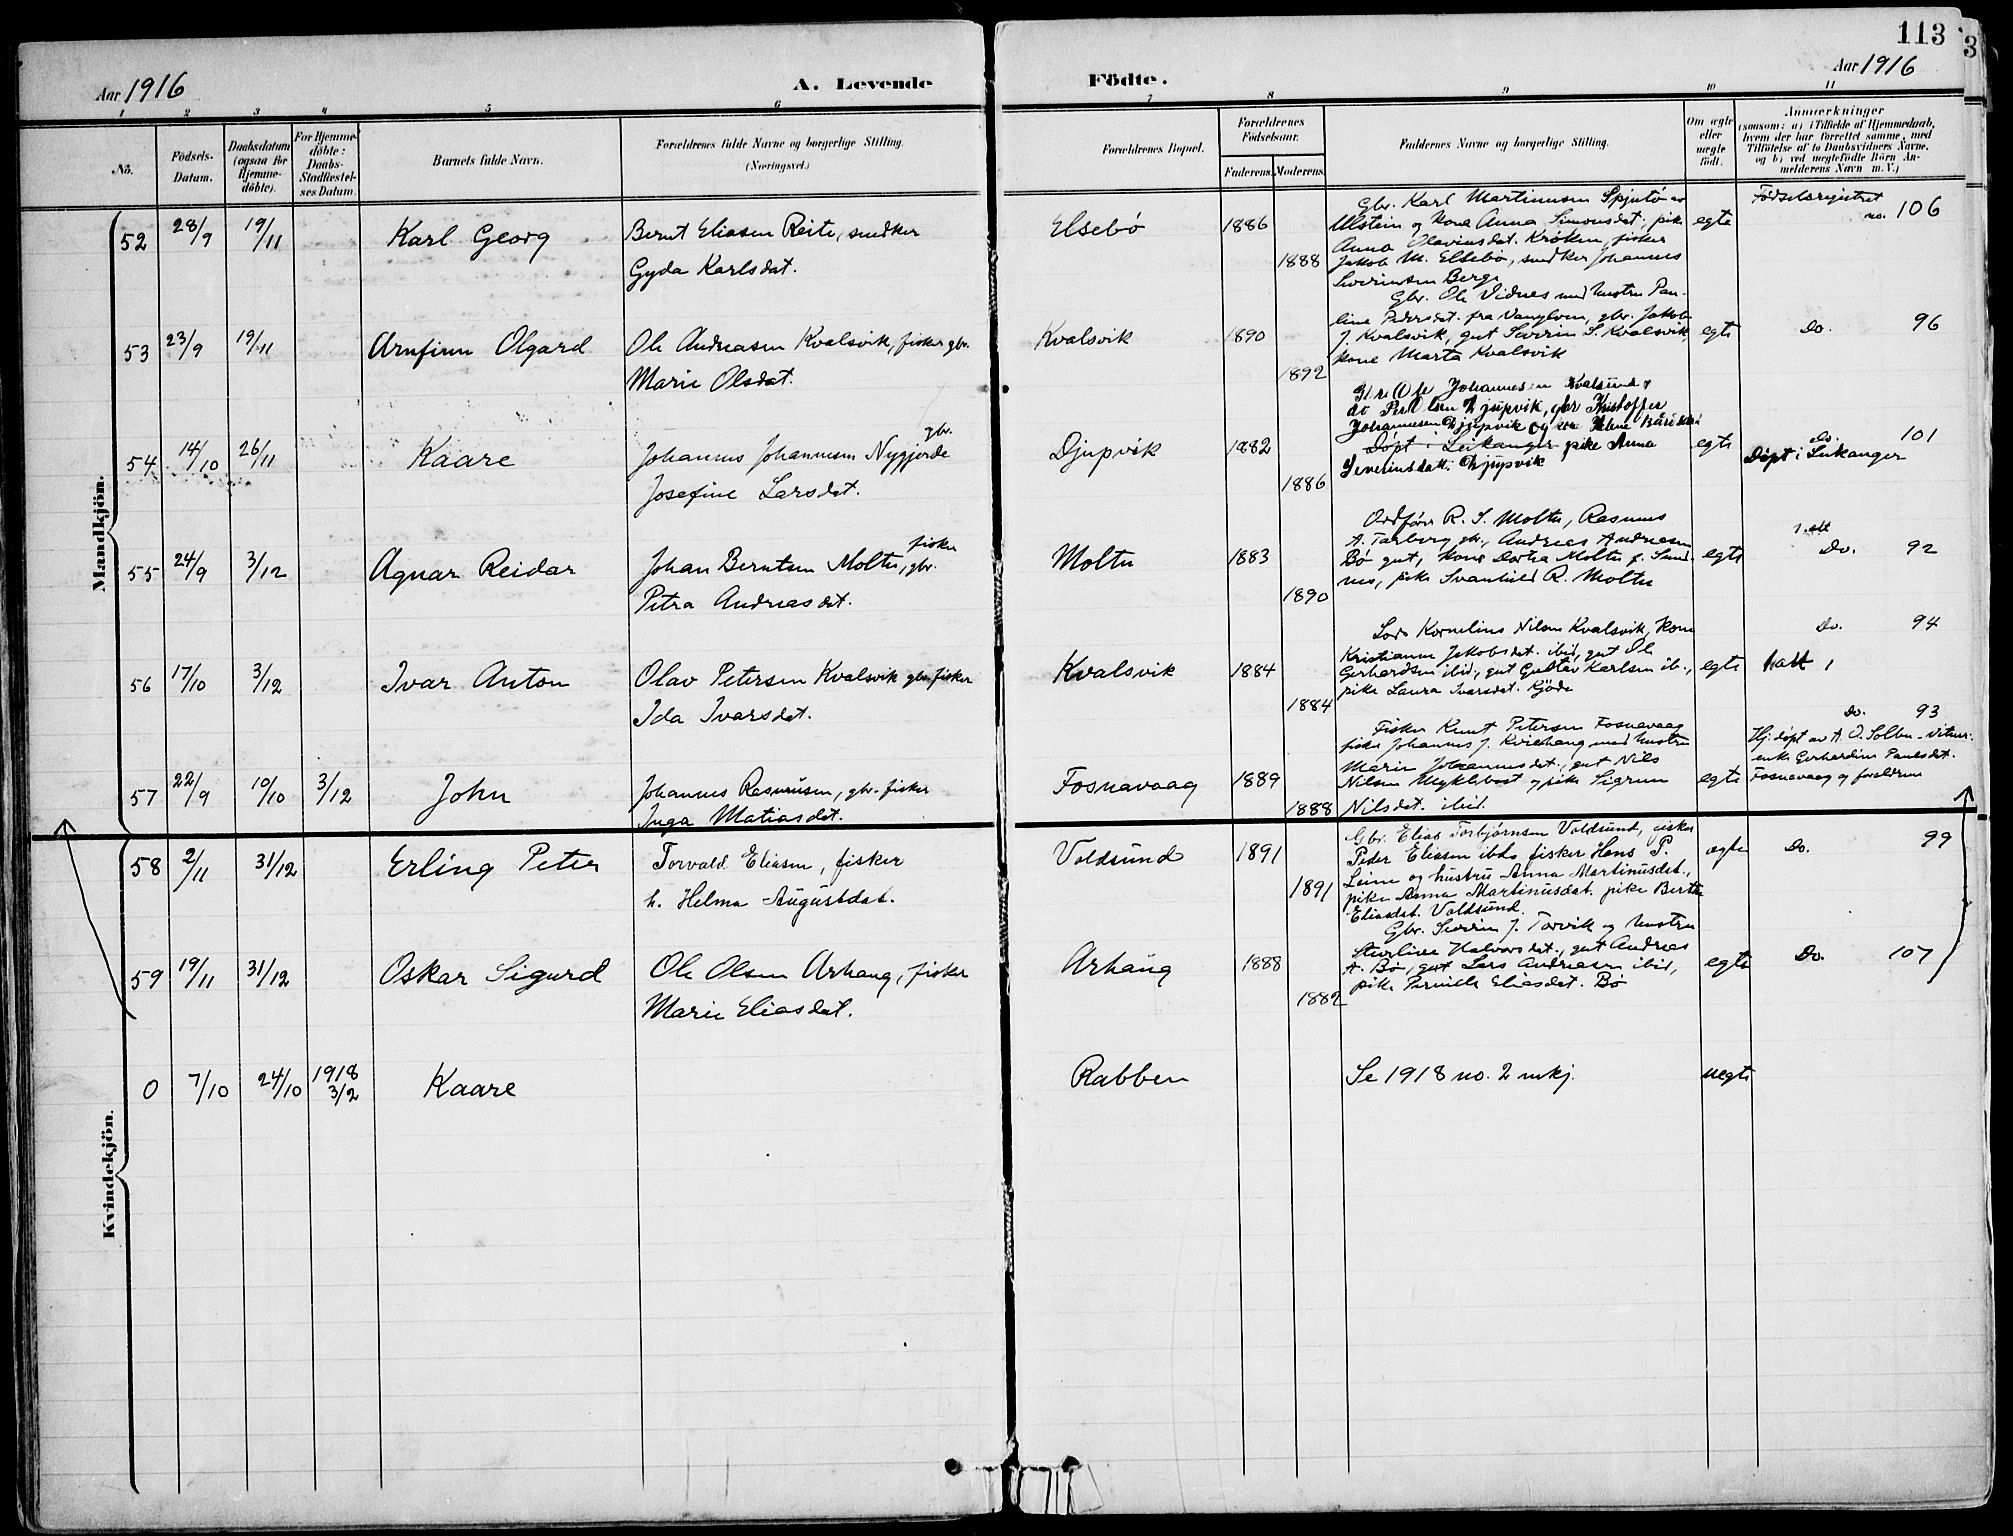 113
3
Aar 1916
A. Levende
Födte.
Aar 1916
1 2 3 4 5 6 7 8 9 10 11
No.
Födsels-Datum.
Daabsdatum (ogsaa for Hjemme-döbte).
For Hjemme-döbte: Daabs-Stadfæstel-ses Datum.
Barnets fulde Navn.
Forældrenes fulde Navne og borgerlige Stilling.
(Næringsvei.)
Forældrenes Bopæl.
Forældrenes Födselsaar.
Faderens. Moderens.
Faddernes Navne og borgerlige Stilling.
Om ægte eller uægte födt.
Anmærkninger
(saasom: a) i Tilfælde af Hjemmedaab,
hvem der har forrettet samme, med
Tilföielse af to Daabsvidners Navne,
og b) ved uægtefödte Börn An-
melderens Navn m. V.)
Mandkjön.
52 28/9 19/11 Karl Georg
Bernt Eliasen Reite, snedker
Gyda Karlsdat.
Elsebö 1886 1888
Gbr. Karl Martinusen Spjutö av
Ulstein og kone Anna Simonsdat., pike
Anna Olavinsdat. Kröken, fisker
Jakob M. Elsebö, snedker Johannes
Severinsen Berge
egte
Födselsregistret
no. 106
53 23/9 19/11 Arnfinn Olgard
Ole Andreasen Kvalsvik, fisker gbr.
Marie Olsdat.
Kvalsvik 1890 1892
Gbr. Ole Vidnes med hustru Pau-
line Pedersdat. fra Vanylven, gbr. Jakob
J. Kvalsvik, gut Severin S. Kvalsvik,
kone Marta Kvalsvik
egte
Do. 96
54 14/10 26/11 Kaare
gbr.
Johannes Johannesen Nygjerde
Josefine Larsdat.
Djupvik 1882 1886
Gbr Ole Johannesen Kvalsund,
do Per Olsen Djupvik, gbr Kristoffer
Johannesen Djupvik og
Döpt i Leikanger pike Anna
Severinsdatt. Djupvik
egte
Do. 101
Döpt i Leikanger
55 24/9 3/12 Agnar Reidar
fisker
Johan Berntsen Moltu, gbr.
Petra Andreasdat.
Moltu 1883 1890
Ordförer R. S. Moltu, Rasmus
A. Tarberg gbr., Andreas Andreasen
Bö gut, kone Dortea Moltu f. Sund
nes, pike Svanhild R. Moltu
egte
Do. 92
56 17/10 3/12 Ivar Anton
Olav Petersen Kvalsvik gbr. fisker
Ida Ivarsdat.
Kvalsvik 1884 1884
Lods Kornelius Nilsen Kvalsvik, kone
Kristianne Jakobsdat. ibid, gut Ole
Gerhardsen ibid, gut Gustav Karlsen ib.,
pike Laura Ivarsdat. Kjöde
egte
Do. 94
57 22/9 10/10 3/12 John
Johannes Rasmusen, gbr. fisker
Inga Matiasdat.
Fosnavaag 1889 1888
Fisker Knut Petersen Fosnavaag
fisker Johannes J. Kvienhaug med hustru
Marie Johannesdat., gut Nils
Nilsen Myklebost og pike Sigrun
Nilsdat. ibid.
egte
Do. 93
Hj. döpt av A. O. Solbu - vitner:
enke Gerhardine Paulsdat.
Fosnavaag og foreldrene
58 2/11 31/12 Erling Peter
Torvald Eliasen, fisker
h. Helma Augustdat.
Voldsund 1891 1891
Gbr. Elias Torbjörnsen Voldsund, fisker
Peder Eliasen ibds fisker Hans P.
Leine og hustru Anna Martinusdat.,
pike Anna Martinusdat. pike Berte
Eliasdat. Voldsund.
egte
Do. 99
59 19/11 31/12 Oskar Sigurd
Ole Olsen Arhaug, fisker
Marie Eliasdat.
Arhaug 1888 1882
Gbr. Severin J. Torvik og hustru
Halvorsdat., gut Andreas
A. Bö, gut Lars Andreasen ibid,
pike Pernille Eliasdat. Bö
egte
Do. 107
Kvindekjön.
0 7/10 24/10 1918 3/2 Kaare
Rabben
Se 1918 no. 2 mkj.
uegte